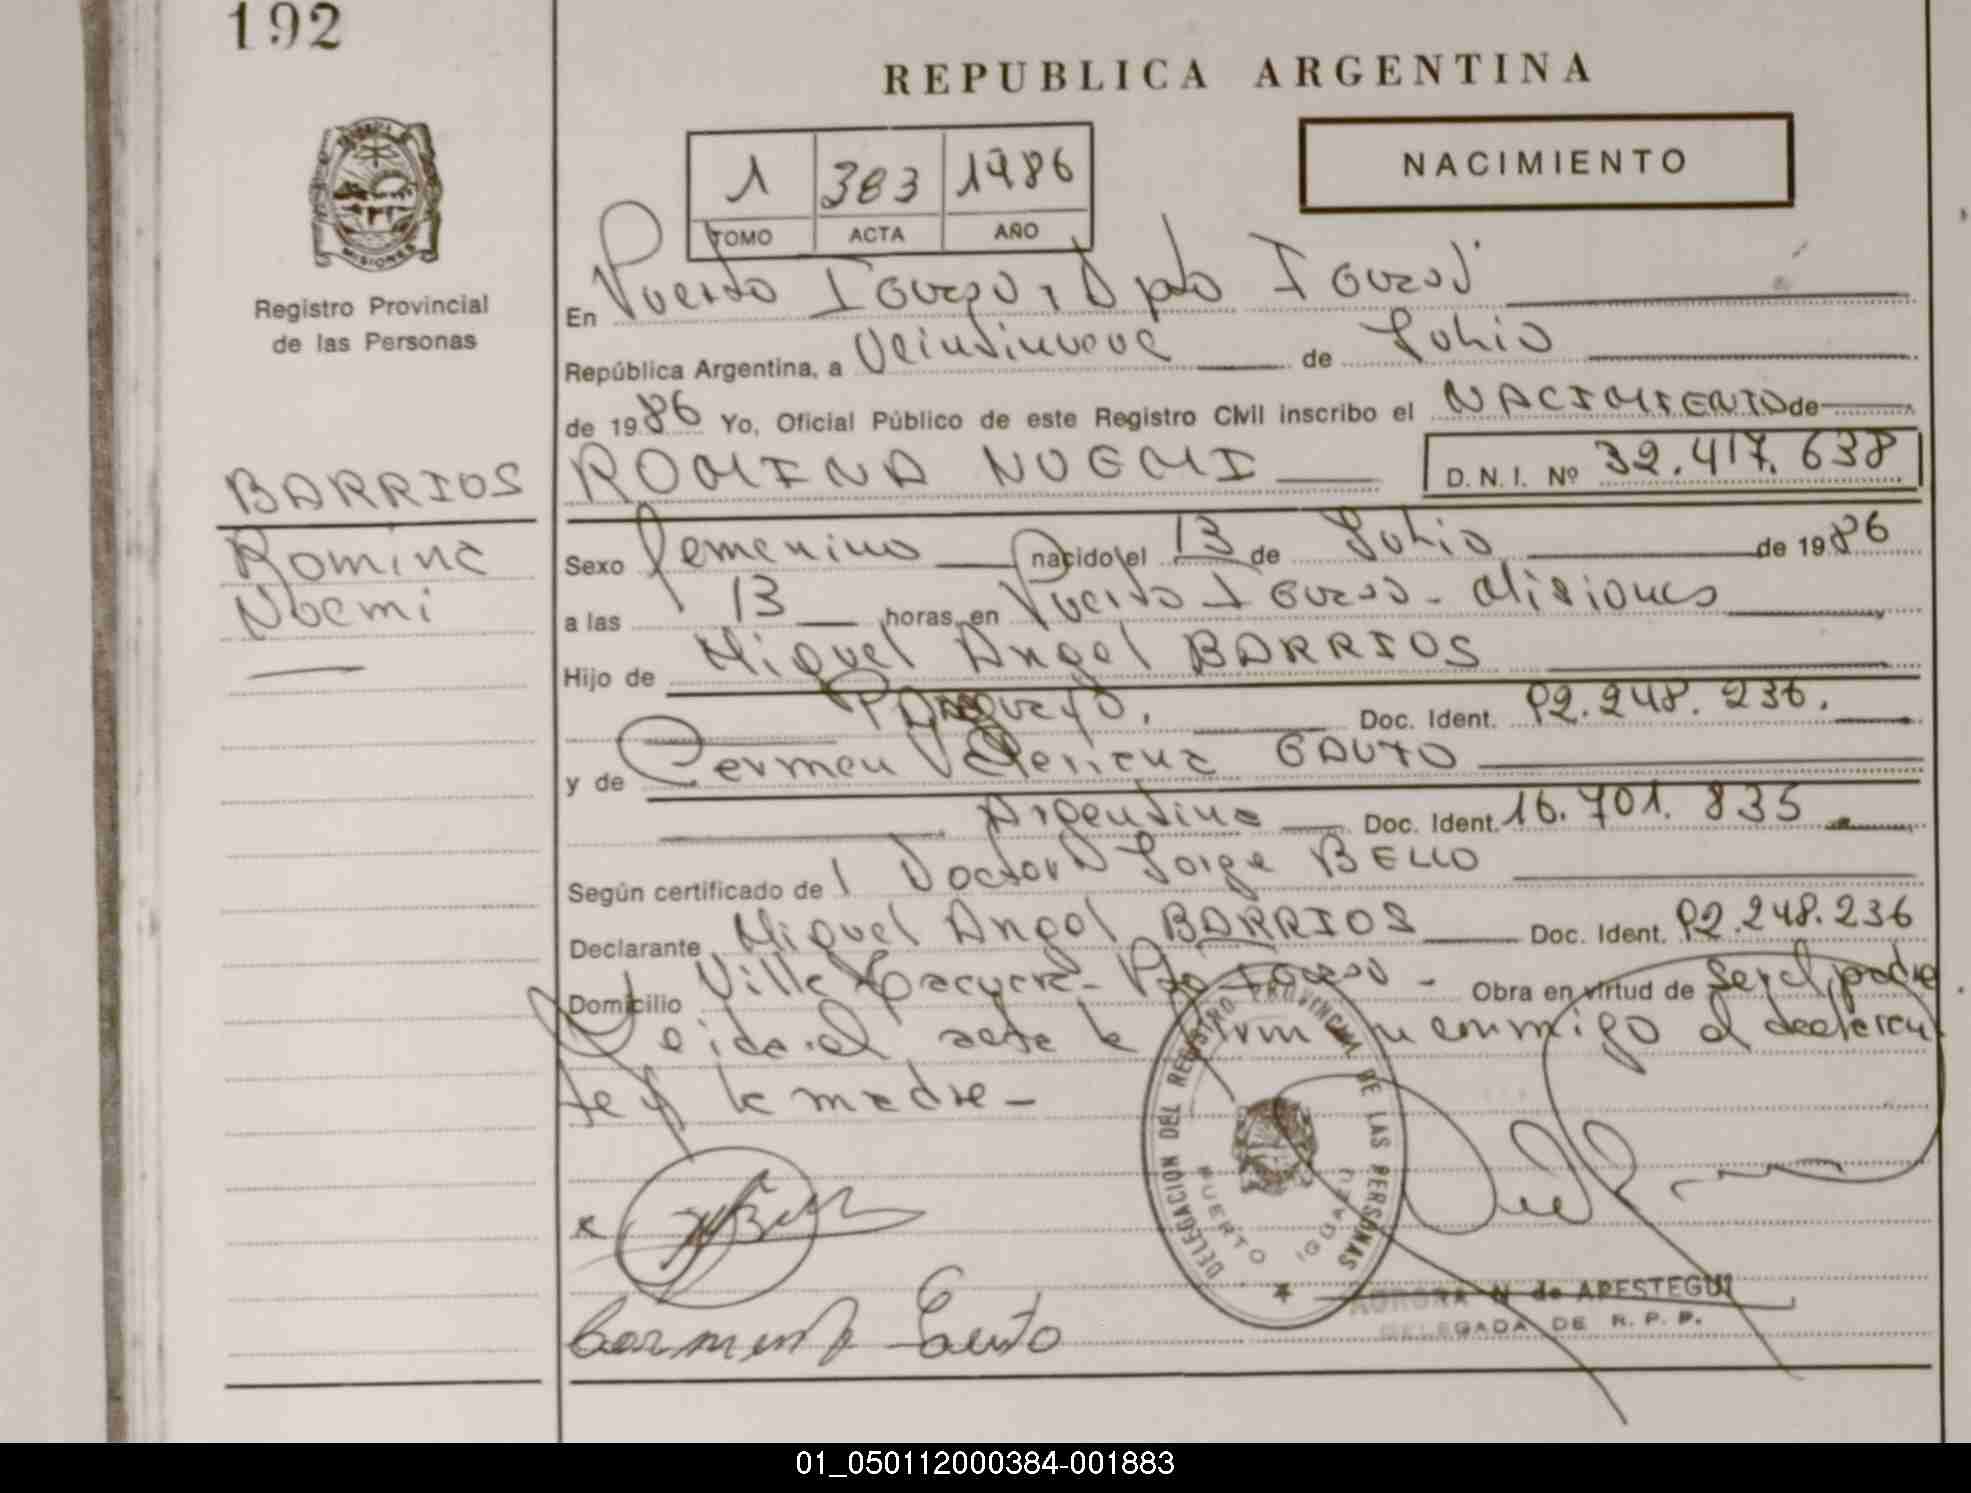 192
REPUBLICA ARGENTINA
NACIMIENTO
1 383 1986
TOMO ACTA AÑO
MISIONES
Registro Provincial
de las Personas
En Puerto Iguazú, Dpto Iguazú
República Argentina, a Veintinueve de Julio
de 1986 Yo, Oficial Público de este Registro Civil inscribo el NACIMIENTO de
BARRIOS
Romina
Noemi
ROMINA NOEMI
D. N. I. Nº 32.417.638
Sexo femenino nacido el 13 de Julio de 1986
a las 13 horas, en Puerto Iguazú - Misiones
Hijo de Miguel Angel BARRIOS
Doc. Ident. P2.248.236.
y de Carmen Valeriana GAUTO
Argentina Doc. Ident. 16.701.835
Según certificado de l Doctor Jorge BELLO
Declarante Miguel Angel BARRIOS Doc. Ident. P2.248.236
Domicilio Villa Pto Iguazú - Obra en virtud de ser el padre
Leida el acta la firman conmigo el declaran
te y la madre -
DELEGACION DEL REGISTRO PROVINCIAL DE LAS PERSONAS
PUERTO IGUAZU
x
AURORA N de APESTEGUI
DELEGADA DE R. P. P.
Gauto
01_050112000384-001883